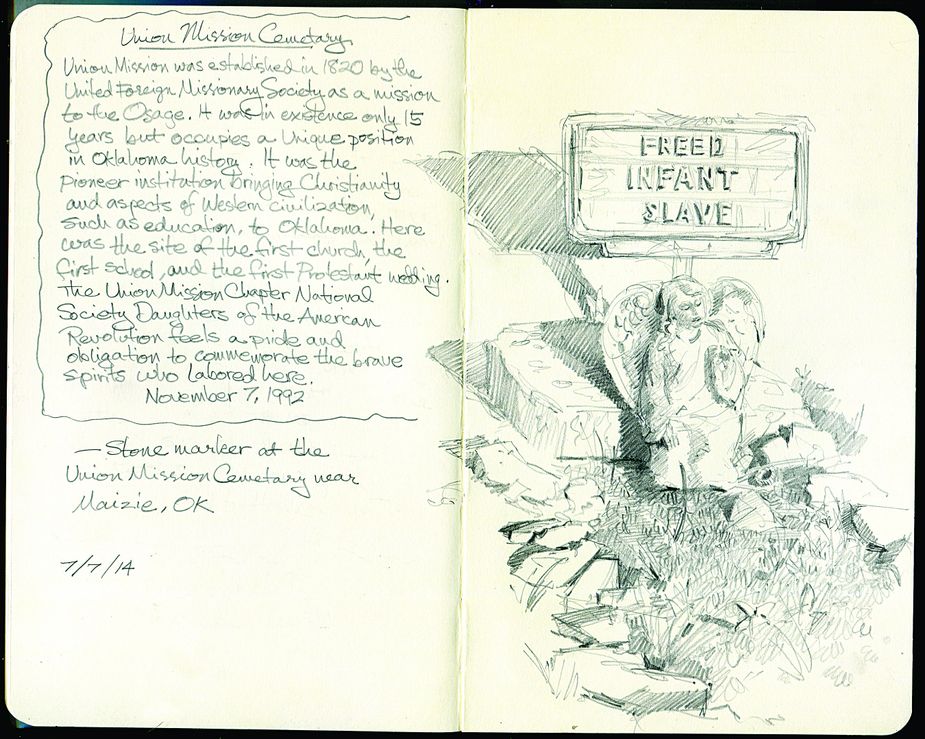 Union Mission Cemetary
Union Mission was established in 1820 by the
United Foreign Missionary Society as a mission
to the Osage. It was in existence only 15
years but occupies a Unique position
in Oklahoma history. It was the
pioneer institution bringing Christianity
and aspects of Western civilization,
such as education, to Oklahoma. Here
was the site of the first church, the
first school, and the first Protestant wedding.
The Union Mission Chapter National
Society Daughters of the American
Revolution feels a pride and
obligation to commemorate the brave
spirits who labored here.
November 7, 1992
— Stone marker at the
Union Mission Cemetary near
Maizie, OK
7/7/14
FREED
INFANT
SLAVE